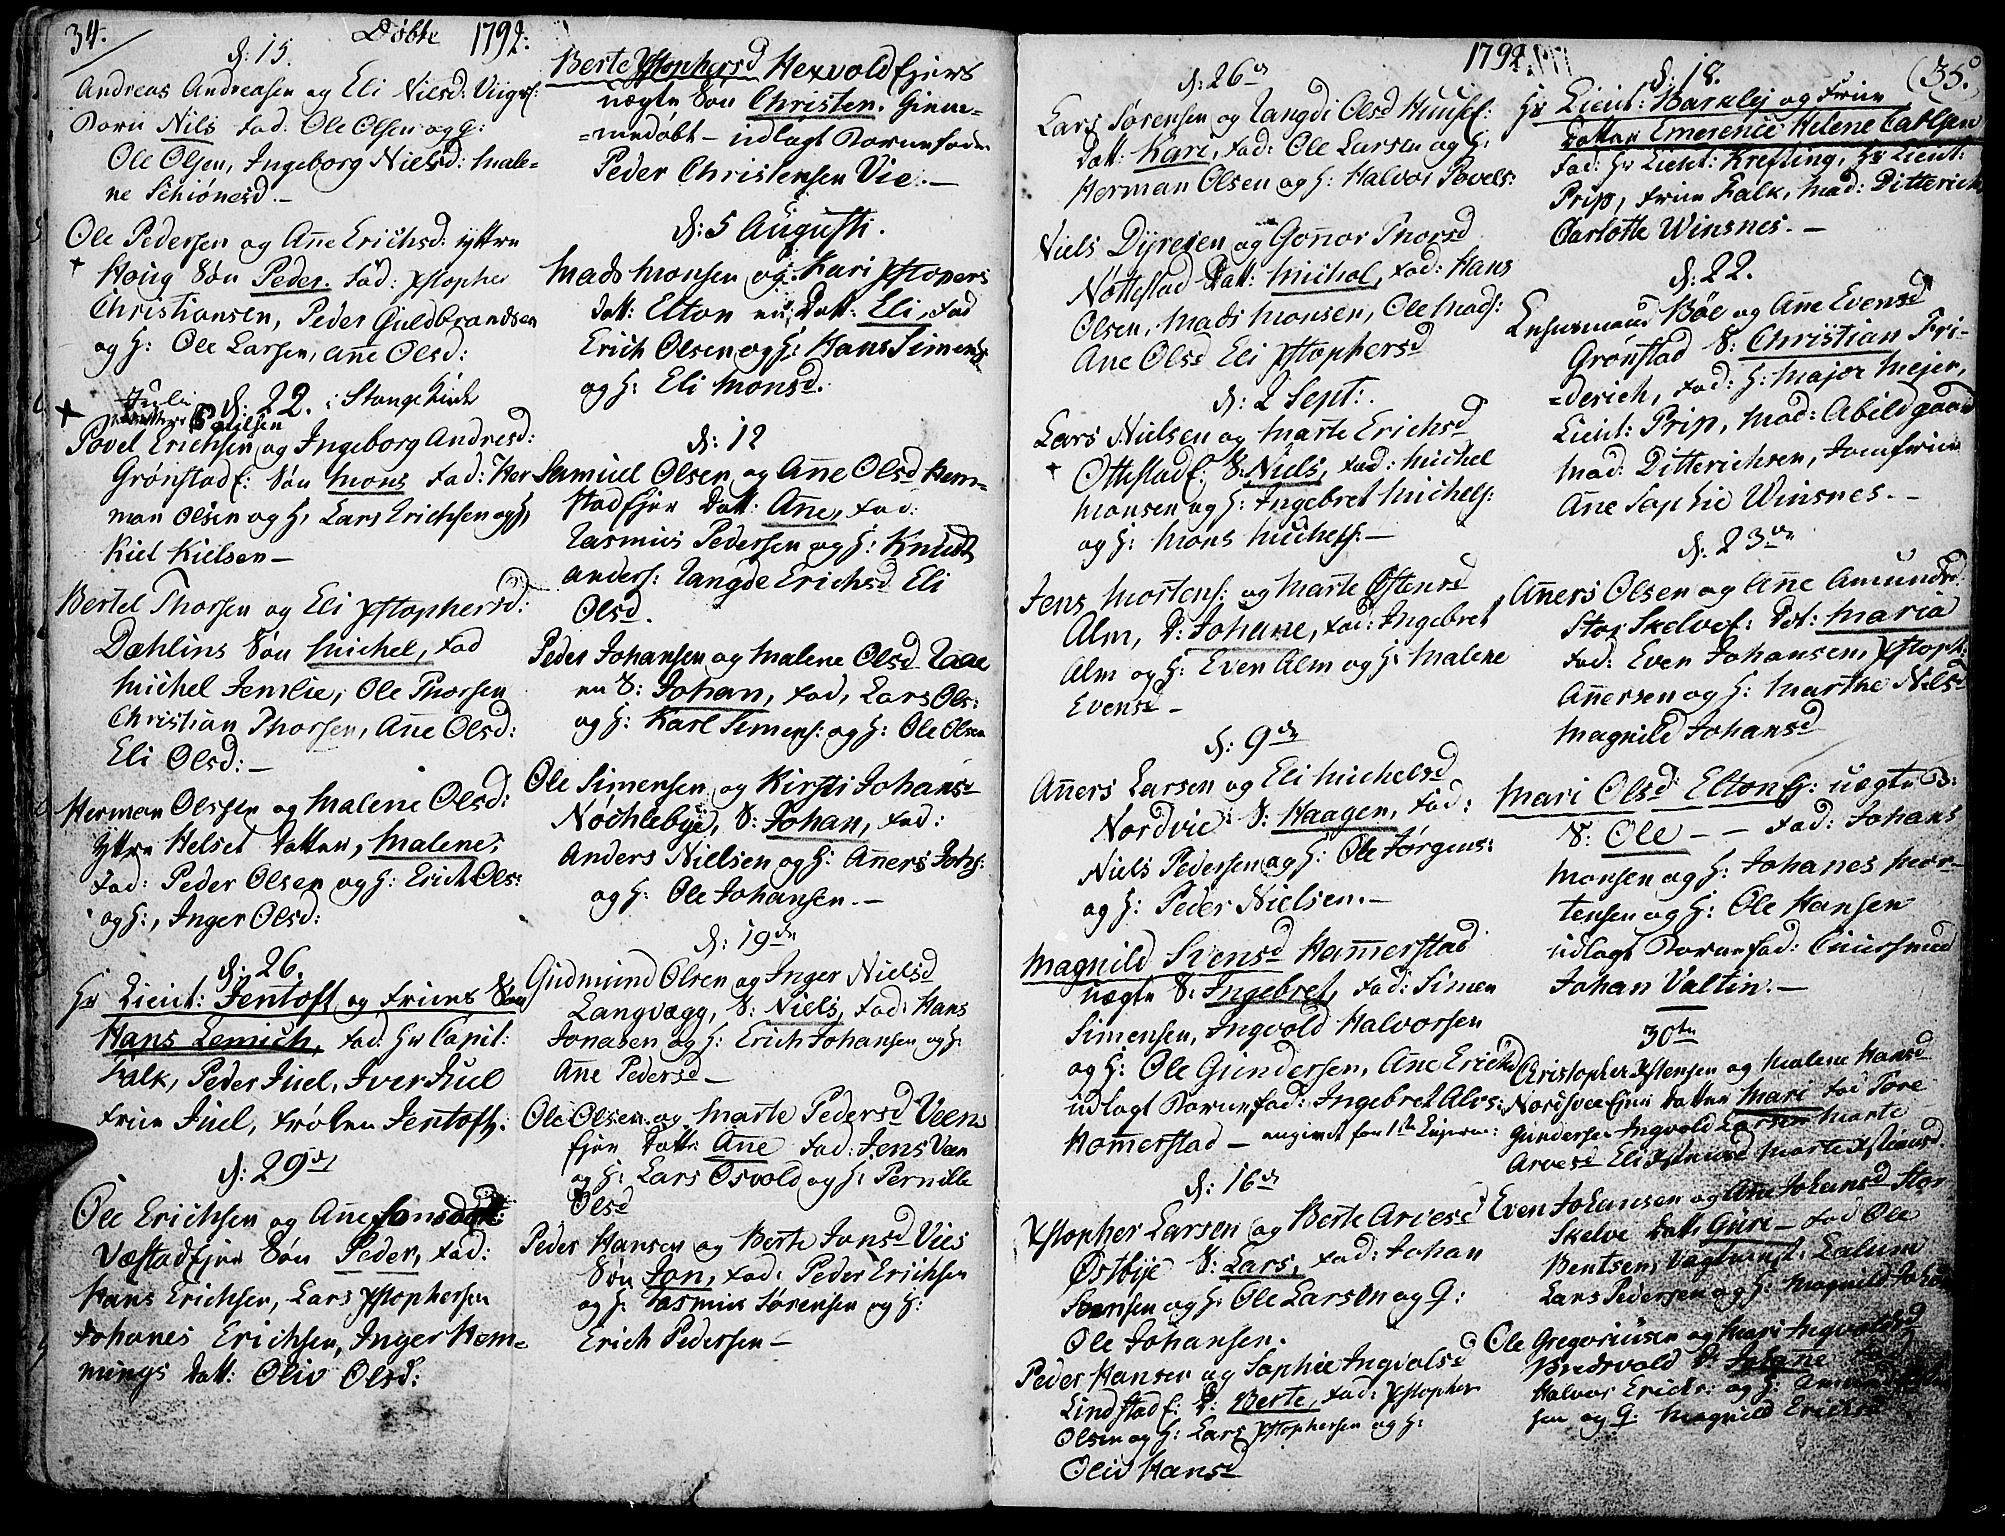 34.
Døbte 1792:
d: 15.
Andreas Andreasen og Eli Nielsd:
Barn Nils Fad: Ole Olsen og H:
Ole Olsen, Ingeborg Nielsd: Male=
ne Schiønesd.–
Ole Pedersen og Ane Erichsd: yttre
Houg Søn Peder. Fad: Xstopher
Christiansen, Peder Guldbrandsen
og H: Ole Larsen, Ane Olsd:
Juli d: 22. i Stange Kirke
Povel Erichsen og Ingeborg Andresd:
Grønstadf: Søn Mons Fad: Her
man Olsen og H, Lars Erichsen og H,
Kiel Kielsen –
Bertel Thorsen og Eli Xstophersd:
Dæhlins Søn Michel, Fad
Michel Jemlie, Ole Thorsen
Christian Thorsen, Ane Olsd:
Eli Olsd: –
Herman Olssen og Malene Olsd:
yttre Helset Datter, Malene,
Fad: Peder Olsen og H: Erich Ols:
og H:, Inger Olsd:
d: 26.
Hr Lieut: Jentoft og Frues Søn
Hans Lemich, Fad: Hr Capit:
Falk, Peder Juel, Iver Juel
Frue Juel, Frøken Jentoft.
d: 29de
Ole Erichsen og Ane
Væstadejer Søn Peder, Fad:
Hans Erichsen, Lars Xstophersen
Johanes Erichsen, Inger Hem=
mings Datt: Oliv Olsd:
Berte Xstophersd Hexvold Ejers
uægte Søn Christen. Hjem=
=medøbt – udlagt Barnefader
Peder Christensen Vie. –
d: 5 Augusti.
Mads Monsen og Kari Xstopers
datt: Elton en Datt: Eli, Fad
Erich Olsen og H: Hans Simens:
og H: Eli Monsd.
d: 12
Samuel Olsen og Ane Olsd Hem=
stad Ejer Datt: Ane, Fad:
Rasmus Pedersen og H: Knud
Anders: Rangde Erichsd Eli
Olsd.
Peder Johansen og Malene Olsd
en S: Johan, Fad, Lars Ols:
og H: Karl Simens: og H: Ole Olsen
Ole Simensen og Kirsti Johansd
Nochlebye, S: Johan, Fad:
Anders Nielsen og H: Aners Joh:
og H: Ole Johansen. –
d: 19de
Gudmund Olsen og Inger Nielsd
Langvægg, S: Niels, Fad: Hans
Jonasen og H: Erich Johansen og H:
Ane Pedersd –
Ole Olsen og Marte Pedersd Veen
Ejer Datt: Ane Fad: Jens Veen
og H: Lars Osvold og H: Pernille
Olsd
Peder Hansen og Berte Jonsd Vies
Søn Jon, Fad: Peder Erichsen
og H: Rasmus Sørensen og H:
Erich Pedersen –
1792
(35.
d: 26de
Lars Sørensen og Rangdi Olsd
Datt: Kari, Fad: Ole Larsen og H:
Herman Olsen og H: Halvor Povels:
Niels Dyresen og Gonor Thorsd
Nøttestad Datt: Michol, Fad: Hans
Olsen, Mads Monsen, Ole Mads:
Ane Olsd Eli Xstophersd
d: 2 Sept:
Lars Nielsen og Marte Erichsd
Ottestadf. S: Niels, Fad: Michel
Monsen og H: Ingebret Michels:
og H: Mons Michels: –
Jens Mortens: og Marte Ostensd
Alm, D: Johane, Fad: Ingebret
Alm og H: Even Alm og H: Malene
Evensd –
d: 9de
Aners Larsen og Eli Michelsd
Nordvie S: Haagen, Fad:
Niels Pedersen og H: Ole Jørgens:
og H: Peder Nielsen. –
Magnild Svensd Hamerstad
uægte S: Ingebret, Fad: Simen
Simensen, Ingvold Halvorsen
og H: Ole Gundersen, Ane Erichsd
udlagt Barnefad: Ingebret Alvs:
Homerstad – angivet for 1ste
d: 16de
Xstopher Larsen og Berte Arvesd
Østbye S: Lars, Fad: Johan
og H: Ole Larsen og H:
Ole Johansen.
Peder Hansen og Sophie Ingvolsd
Lindstadf: D: Berte, Fad: Xstopher
Olsen og H: Lars Xstophersen og H:
Oliv Hansd
d: 18.
Hr Lieut: Barkley og Frue
Datter Emerence Helene Carlsen
Fad: Hr Lieut: Krefting, Hr Lieut:
Prip, Frue Falk, Mad: Ditterich
Carlotte Winsnes. –
d: 22.
Bøe og Ane Evensd
Grønstad S: Christian Fri=
=derich, Fad: H: Major Mejer,
Lieut: Prip, Mad: Abildgaard
Mad: Ditterichsen, Jomfrue
Ane Sophie Winsnes. –
d: 23de
Aners Olsen og Ane Amundsd:
Stor Skelvef: Dat: Maria
Fad: Even Johansen, Xstoph:
Anersen og H: Marthe Nilsd
Magnild Johansd
Mari Olsd: Elton H: uægte B:
S: Ole – – Fad: Johans
Monsen og H: Johanes Mor=
tensen og H: Ole Hansen
udlagt Barnefad:
Johan Valtin. –
30te
Christopher Xstensen og Malene Hansd
Nordsvee Ejer Datter Mari Fad Tore
Gundersen Ingvold Larsen Marte
Arvesd Eli Marte
Even Johansen og Ane Johansd Stor
Skelve Datt: Guri – Fad Ole
Bentsen,
Lars Pedersen og H: Magnild
Ole Gregoriusen og Mari Ingvoldsd
Bredsvold D: Johane Fad
Halvor Erichs: og H:
sen og H: Magnild Erichsd